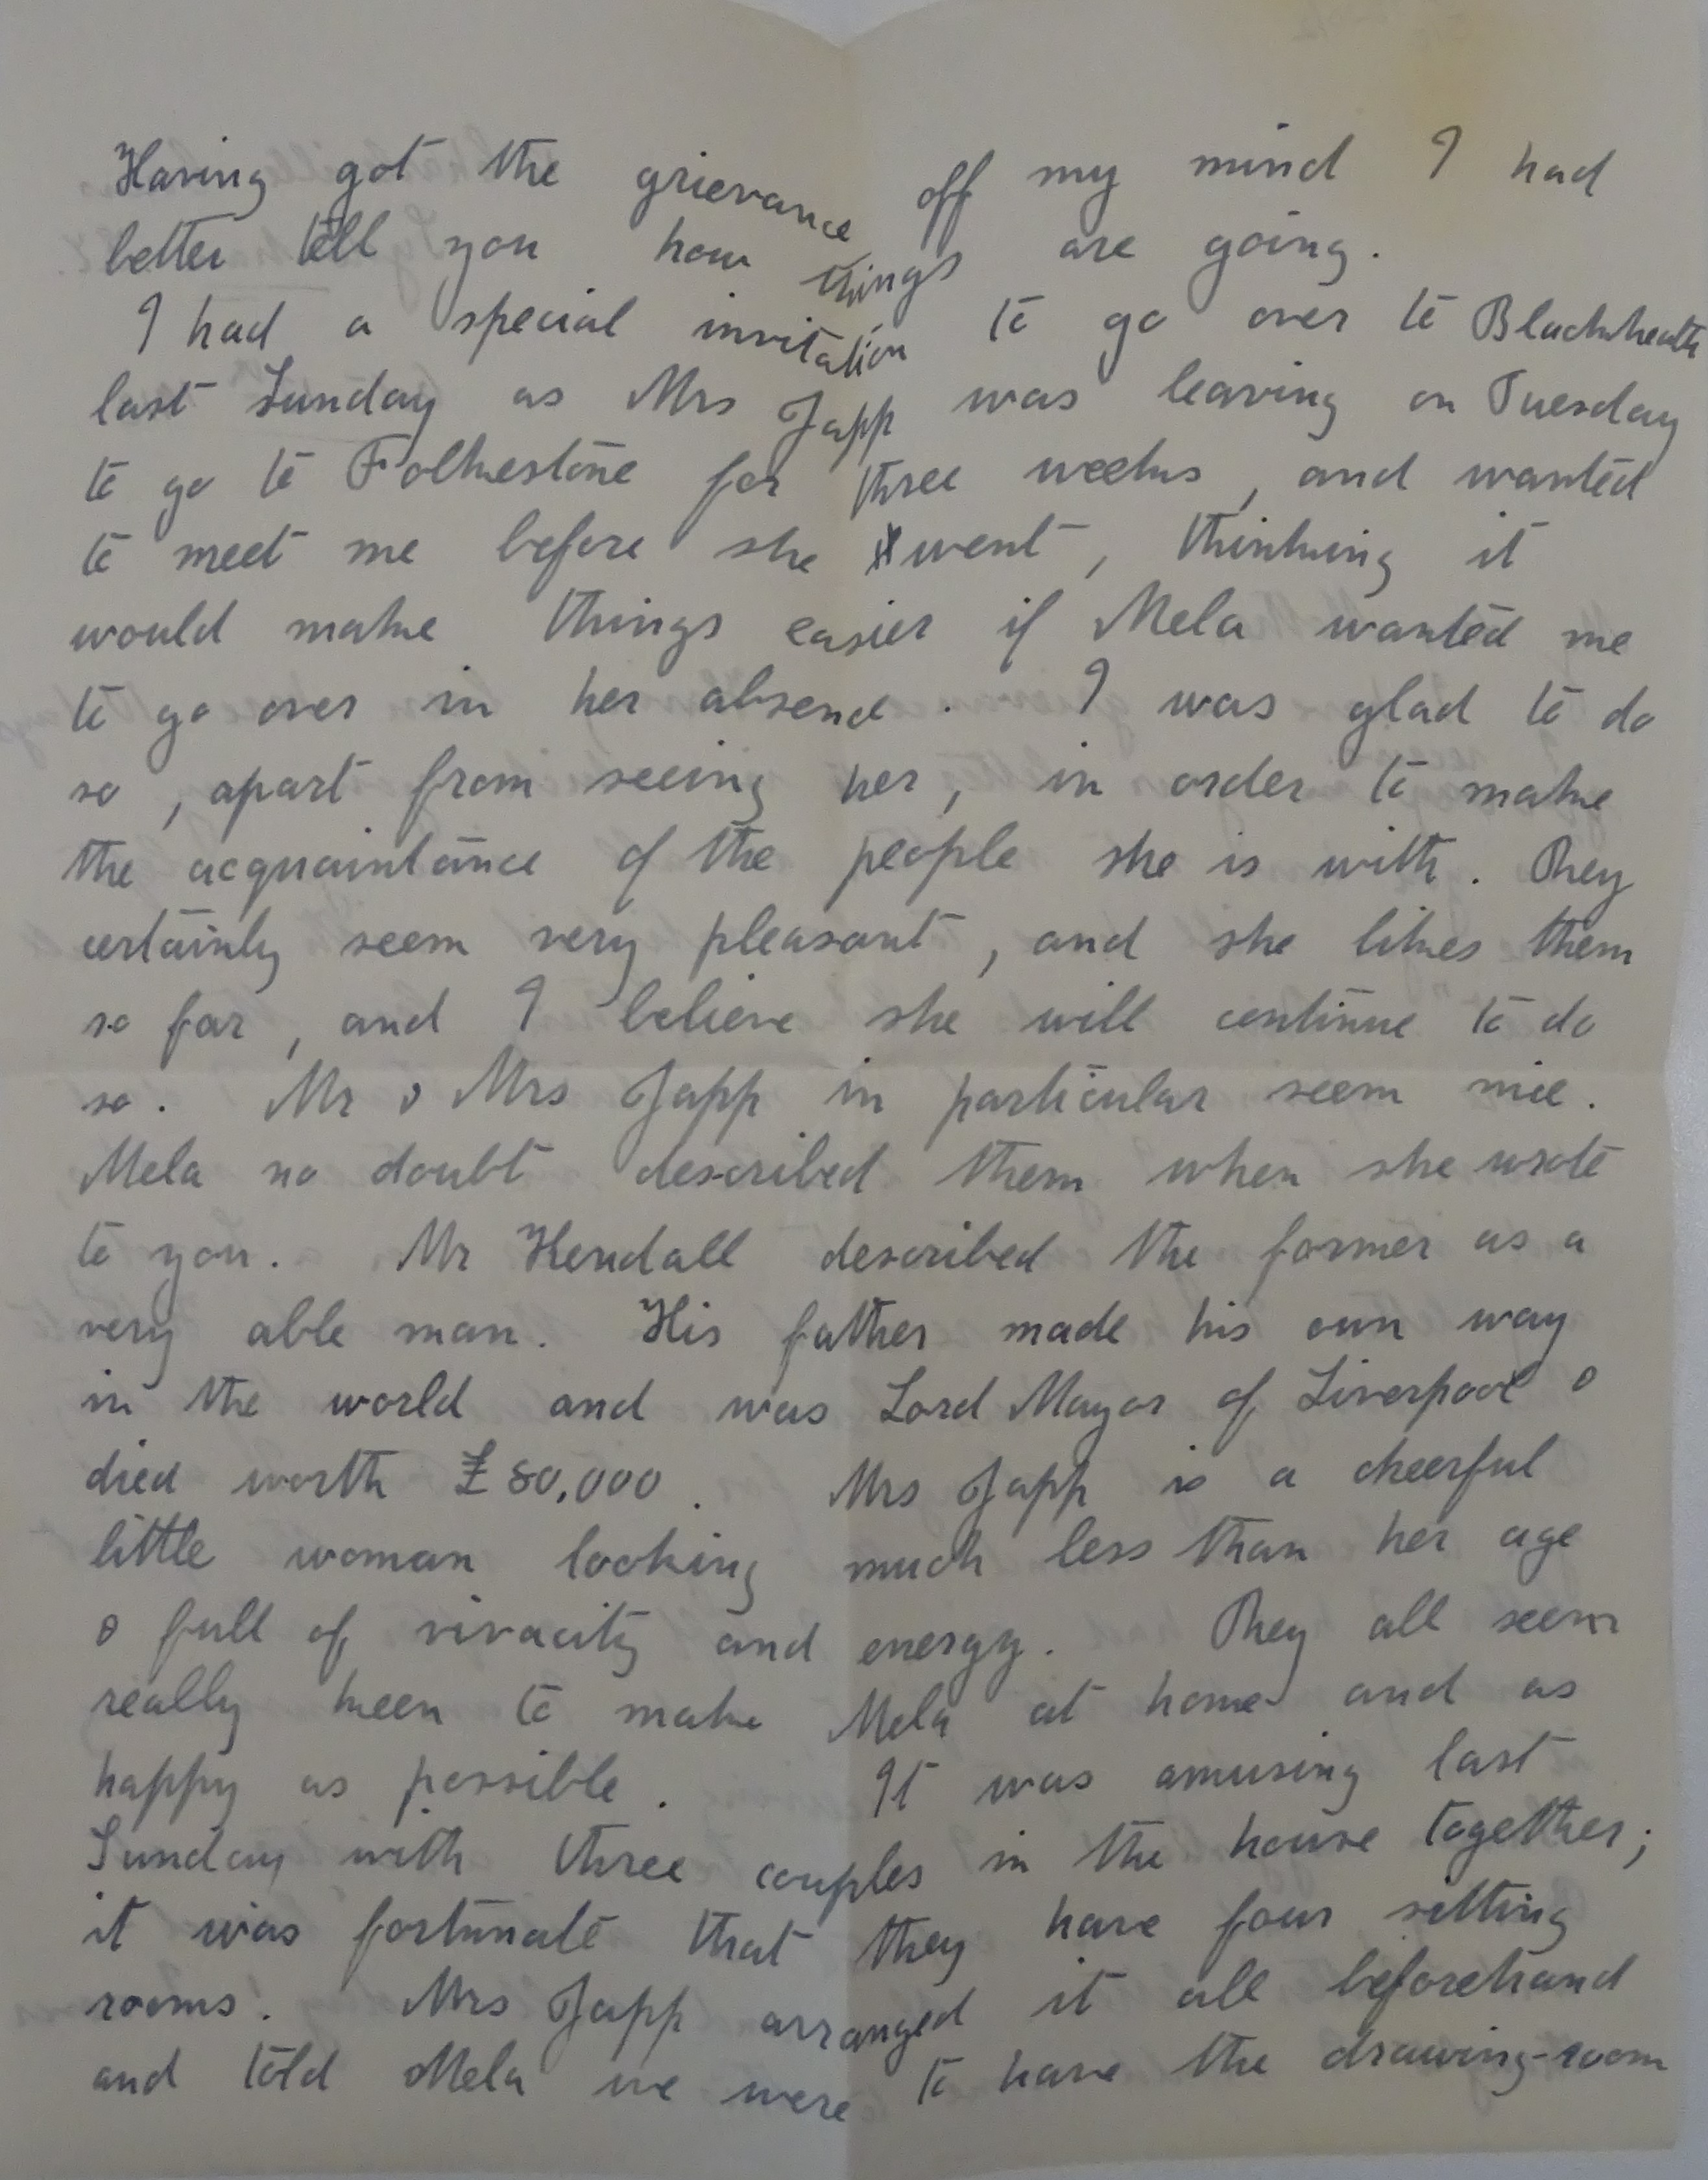 Having got the grievance off my mind I had
better tell you how things are going.
I had a special invitation to go over to Blackheath
last Sunday as Mrs Japp was leaving on Tuesday
to go to Folkestone for three weeks, and wanted
to meet me before she went, thinking it
would make things easier if Mela wanted me
to go over in her absence. I was glad to do
so, apart from seeing her, in order to make
the acquaintance of the people she is with. They
certainly seem very pleasant, and she likes them
so far, and I believe she will continue to do
so. Mr & Mrs Japp in particular seem nice.
Mela no doubt described them when she wrote
to you. Mr Kendall described the former as a
very able man. His father made his own way
in the world and was Lord Mayor of Liverpool &
died worth £80,000. Mrs Japp is a cheerful
little woman looking much less than her age
& full of vivacity and energy. They all seem
really keen to make Mela at home and as
happy as possible. It was amusing last
Sunday with three couples in the house together;
it was fortunate that they have four sitting
rooms. Mrs Japp arranged it all beforehand
and told Mela we were to have the drawing-room